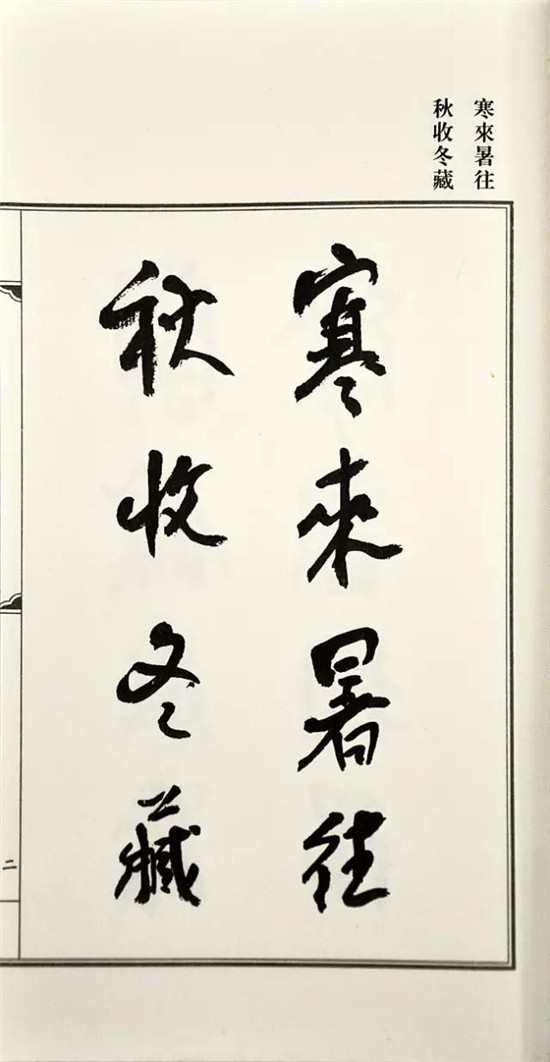 寒來暑往
秋收冬藏
寒來暑往
秋收冬藏
二